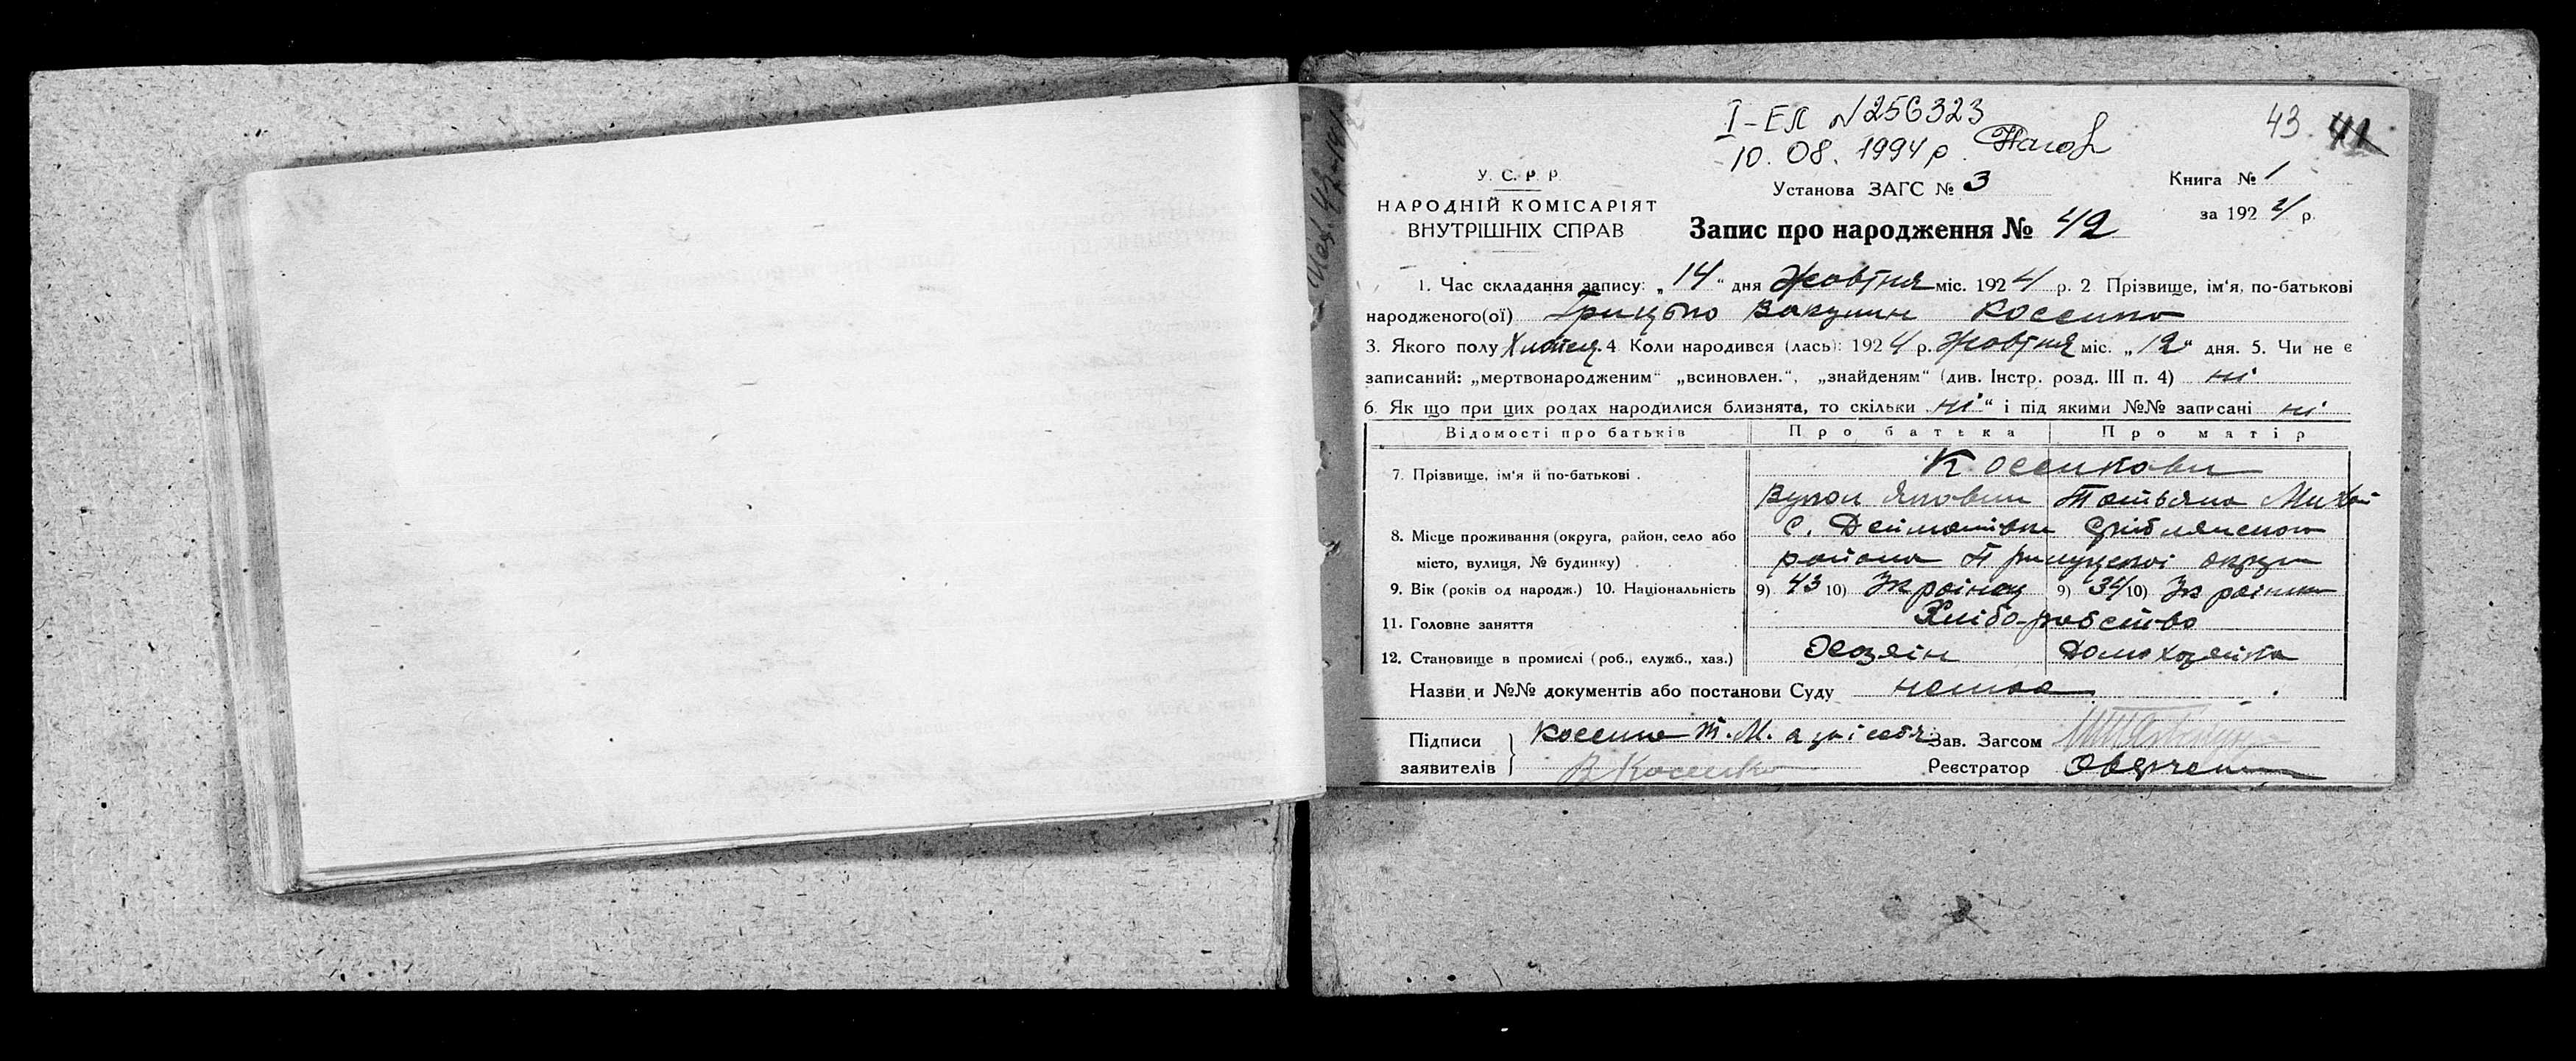 I-ЕЛ №256323
10.08.1994 р.
43 41
У. С. Р. Р.
НАРОДНІЙ КОМІСАРІЯТ
ВНУТРІШНІХ СПРАВ
Установа ЗАГС № 3
Книга № 1
за 1924 р.
Запис про народження № 42
1. Час складання запису: „14“ дня Жовтня міс. 1924 р. 2 Прізвище, ім'я, по-батькові
народженого(ої) Грицько Вакулин Косенко
3. Якого полу Хлопець 4 Коли народився (лась): 1924 р. Жовтня міс. „12“ дня. 5. Чи не є
записаний: „мертвонародженим“ „всиновлен.“, „знайденям“ (див. Інстр. розд. III п. 4) ні
6. Як що при цих родах народилися близнята, то скільки „ні“ і під якими №№ записані ні
Відомості про батьків Про батька Про матір
7. Прізвище, ім'я й по-батькові . Косенкови
Татьяна
8. Місце проживання (округа, район, село або С. Дейманівка Срiблянського
місто, вулиця, № будинку) района Прилуцькоі округи
9. Вік (років од народж.) 10. Національність 9) 43 10) Украінец 9) 34 10) Украінка
11. Головне заняття Хлібо-робство
12. Становище в промислі (роб., служб., хаз.) Хозяін Домохозяйка
Назви и №№ документів або постанови Суду немае
Підписи Косенко Т. М. а за і себя Зав. Загсом
заявителів В Косенко Реєстратор